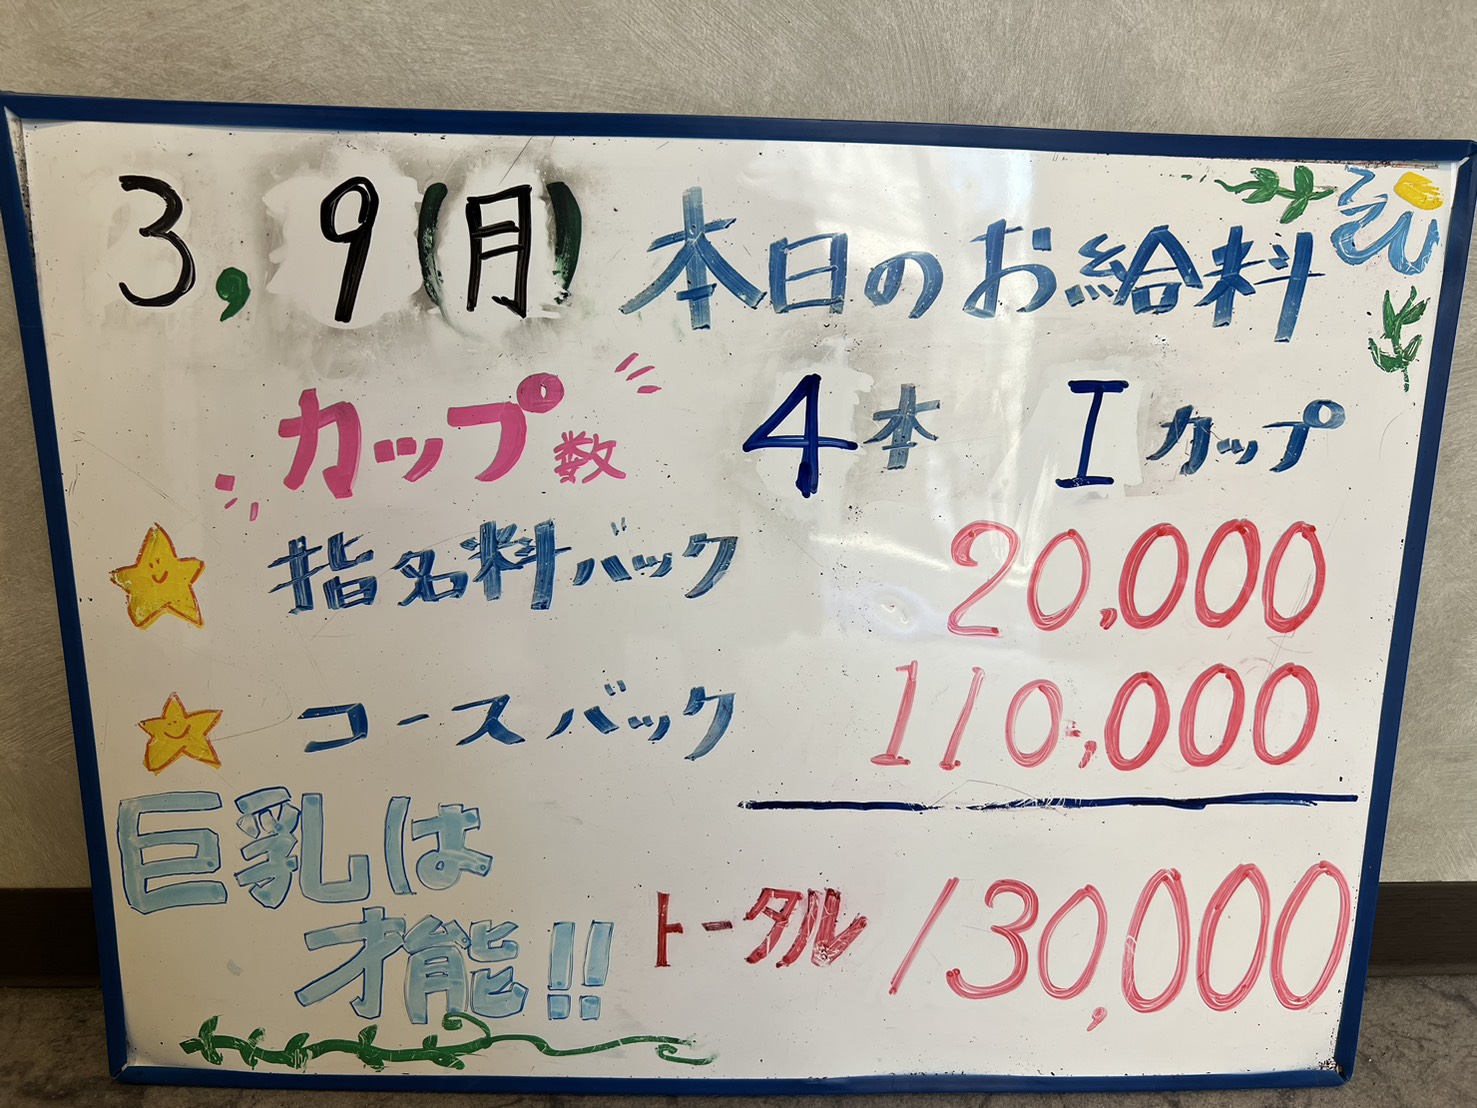 3,9(月) 本日のお給料
カップ数 4本 Iカップ
指名料バック 20,000
コースバック 110,000
巨乳は
才能!!
トータル 130,000